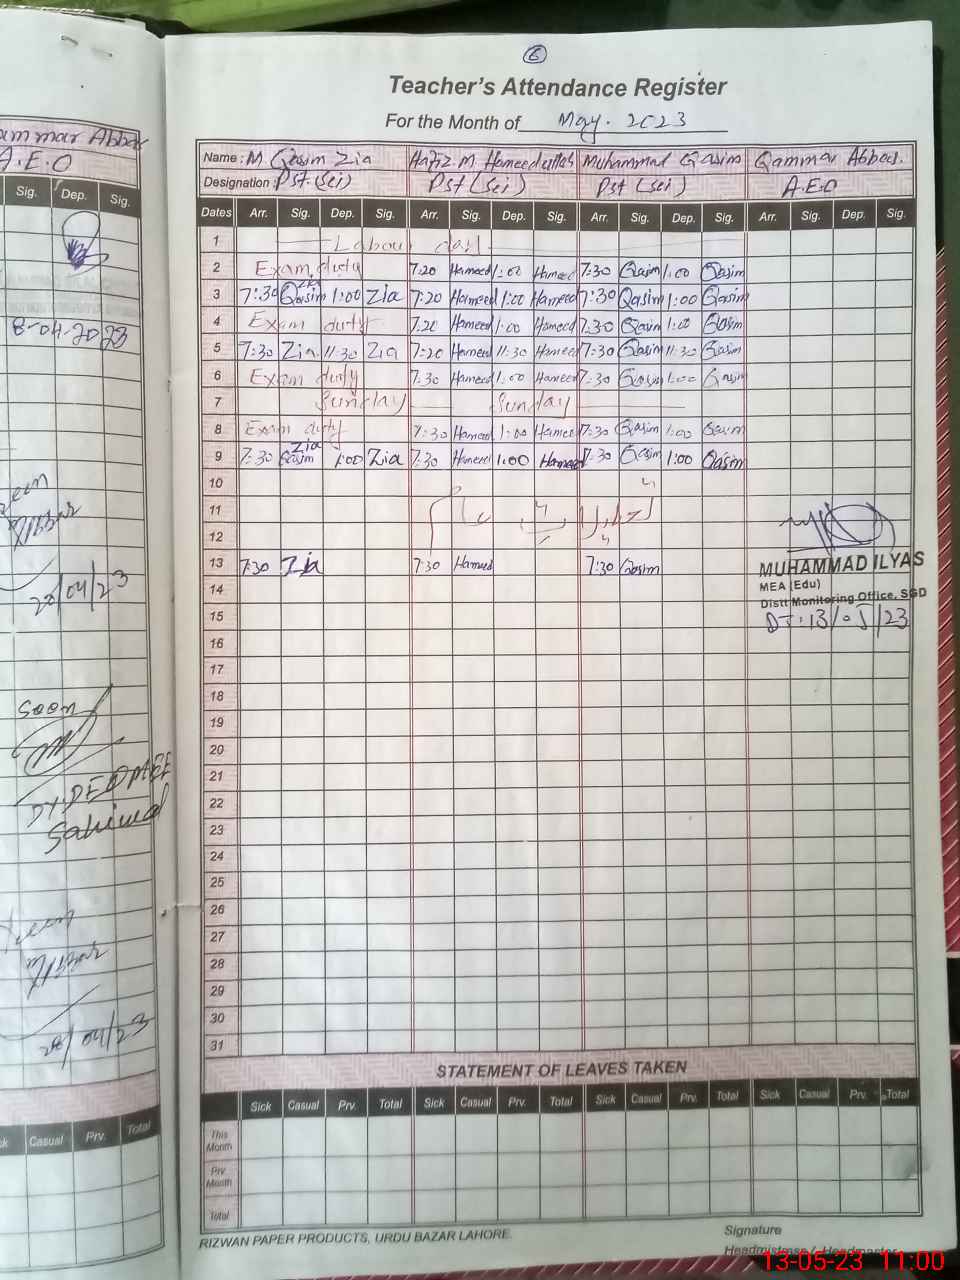 6
Teacher's Attendance Register
For the Month of May. 2023
Name: M. Qasim Zia Hafiz M Hameedullah Muhammad Qasim Qammar Abbas.
Designation: Pst (Sci) Pst (Sci) Pst (Sci) A.E.O
Dates Arr. Sig. Dep. Sig. Arr. Sig. Dep. Sig. Arr. Sig. Dep. Sig. Arr. Sig. Dep. Sig.
1 Labour day
2 Exam duty 7:20 Hameed 1:00 Hameed 7:30 Qasim 1:00 Qasim
3 7:30 Zia Qasim 1:00 Zia 7:20 Hameed 1:00 Hameed 7:30 Qasim 1:00 Qasim
4 Exam duty 7:20 Hameed 1:00 Hameed 7:30 Qasim 1:00 Qasim
5 7:30 Zia 11:30 Zia 7:20 Hameed 11:30 Hameed 7:30 Qasim 11:30 Qasim
6 Exam duty 7:30 Hameed 1:00 Hameed 7:30 Qasim 1:00 Qasim
7 Sunday Sunday
8 Exam duty 7:30 Hameed 1:00 Hameed 7:30 Qasim 1:00 Qasim
9 7:30 Zia Qasim 1:00 Zia 7:30 Hameed 1:00 Hameed 7:30 Qasim 1:00 Qasim
10
11
12
13 7:30 Zia 7:30 Hameed 7:30 Qasim
MUHAMMAD ILYAS
MEA (Edu)
Distt Monitoring Office, SGD
DT:13/05/23
14
15
16
17
18
19
20
21
22
23
24
25
26
27
28
29
30
31
STATEMENT OF LEAVES TAKEN
Sick Casual Prv. Total Sick Casual Prv. Total Sick Casual Prv. Total Sick Casual Prv. Total
This Month
Prv Month
Total
RIZWAN PAPER PRODUCTS, URDU BAZAR LAHORE.
Signature
Headmistress / Headmaster
13-05-23 11:00
ammar Abbas
A.E.O
Sig. Dep. Sig.
8-04-2023
20/04/23
Soon
DY.DEO MEE
Sahiwal
20/04/23
Casual Prv. Total